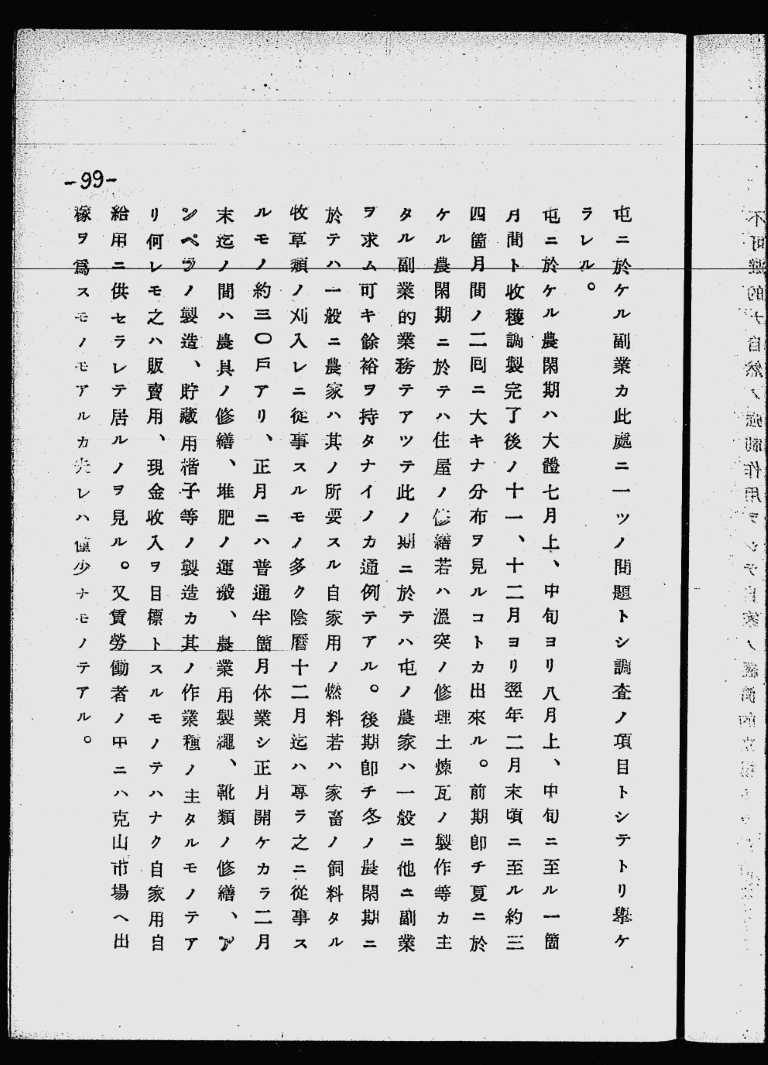 -99-
屯ニ於ケル副業カ此處ニ一ツノ問題トシ調査ノ項目トシテトリ擧ケ
ラレル。
屯ニ於ケル農閑期ハ大體七月上、中旬ヨリ八月上、中旬ニ至ル一箇
月間ト收穫調製完了後ノ十一、十二月ヨリ翌年二月末頃ニ至ル約三
四箇月間ノ二囘ニ大キナ分布ヲ見ルコトカ出來ル。前期卽チ夏ニ於
ケル農閑期ニ於テハ住屋ノ修繕若ハ溫突ノ修理土煉瓦ノ製作等カ主
タル副業的業務テアツテ此ノ期ニ於テハ屯ノ農家ハ一般ニ他ニ副業
ヲ求ム可キ餘裕ヲ持タナイノカ通例テアル。後期卽チ冬ノ農閑期ニ
於テハ一般ニ農家ハ其ノ所要スル自家用ノ燃料若ハ家畜ノ飼料タル
牧草類ノ刈入レニ從事スルモノ多ク陰曆十二月迄ハ專ラ之ニ從事ス
ルモノ約三〇戶アリ、正月ニハ普通半箇月休業シ正月開ケカラ二月
末迄ノ間ハ農具ノ修繕、堆肥ノ運搬、農業用製繩、靴類ノ修繕、ア
ンペラノ製造、貯藏用楷子等ノ製造カ其ノ作業種ノ主タルモノテア
リ何レモ之ハ販賣用、現金收入ヲ目標トスルモノテハナク自家用自
給用ニ供セラレテ居ルノヲ見ル。又賃勞働者ノ中ニハ克山市場ヘ出
稼ヲ爲スモノモアルカ夫レハ僅少ナモノテアル。